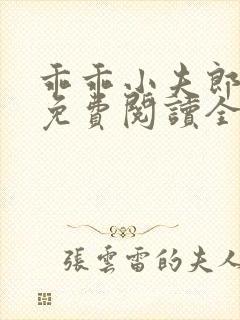 乖乖小夫郎
免費閱讀全
張雲雷的夫人